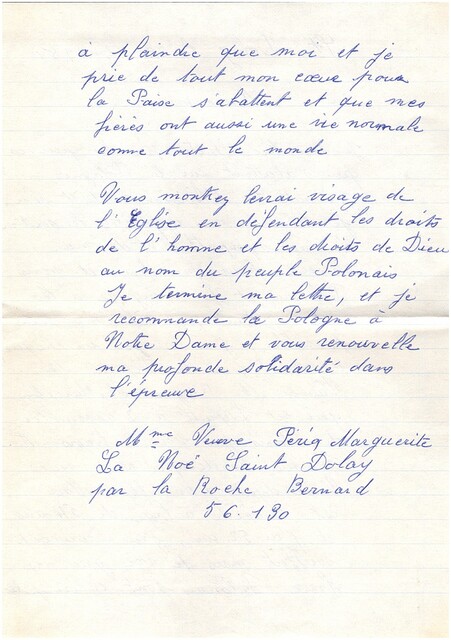 à plaindre que moi et je
prie de tout mon cœur pour
la Paise s'abattent et que mes
fières ont aussi une vie normale
comne tout le monde
Vous montrez levrai visage de
l'Eglise en défendant les droits
de l'homme et les droits de Dieu
au nom du peuple Polonais
Je termine ma lettre, et je
recommande la Pologne à
Notre Dame et vous renouvelle
ma profonde solidarité dans
l'épreuve
Mme Veuve Périq Marguerite
La Noë Saint Dolay
par la Roche Bernard
56.130